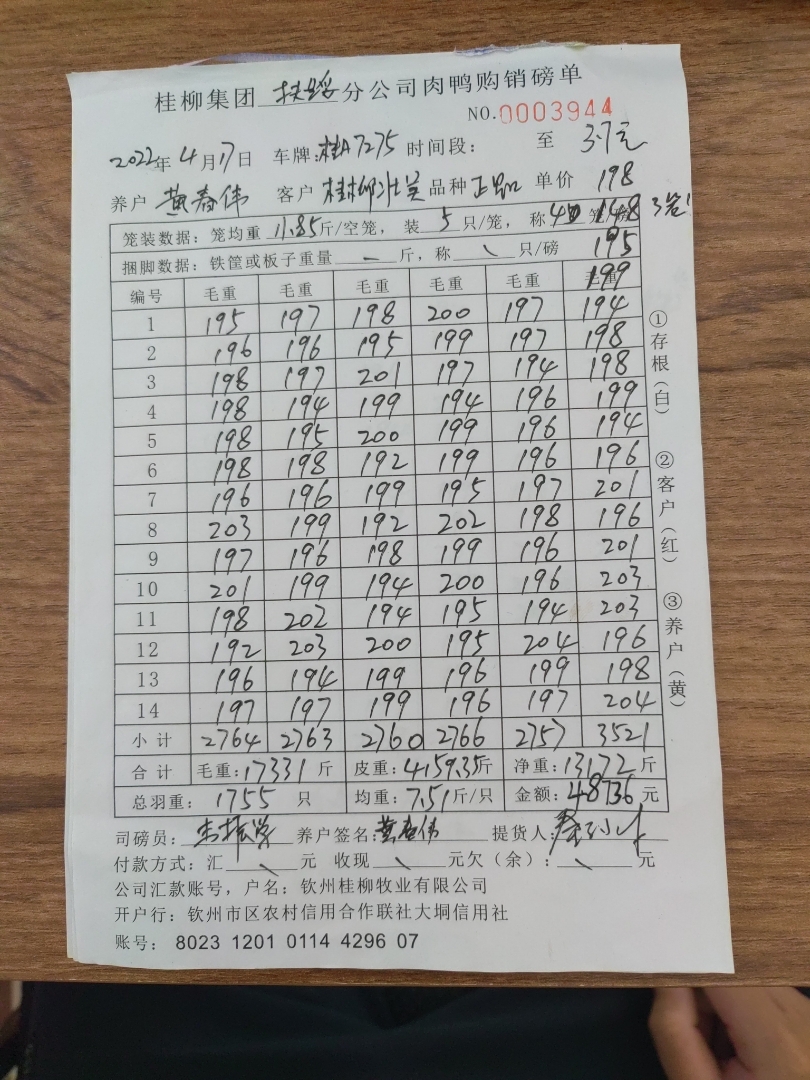 桂柳集团 扶绥 分公司肉鸭购销磅单
NO.0003944
2022年4月17日 车牌:桂A7275 时间段: 至 3.7元
养户 黄春伟 客户 桂柳 品种 正品 单价 198
笼装数据: 笼均重 11.85斤/空笼, 装 5 只/笼, 称 4 148 3笼
捆脚数据: 铁筐或板子重量 — 斤, 称 \ 只/磅 195
编号 毛重 毛重 毛重 毛重 毛重 199
1 195 197 198 200 197 194
2 196 196 195 199 197 198
3 198 197 201 197 194 198
4 198 194 199 194 196 199
5 198 195 200 199 196 194
6 198 198 192 199 196 196
7 196 196 199 195 197 201
8 203 199 192 202 198 196
9 197 196 198 199 196 201
10 201 199 194 200 196 203
11 198 202 194 195 194 203
12 192 203 200 195 204 196
13 196 194 199 196 199 198
14 197 197 199 196 197 204
小计 2764 2763 2760 2766 2757 3521
合计 毛重:17331 斤 皮重:4159.35斤 净重:13172 斤
总羽重: 1755 只 均重:7.51斤/只 金额:48736 元
司磅员: 养户签名:黄春伟 提货人:
付款方式: 汇 \ 元 收现 \ 元欠(余): \ 元
公司汇款账号, 户名: 钦州桂柳牧业有限公司
开户行: 钦州市区农村信用合作联社大垌信用社
账号: 8023 1201 0114 4296 07
①存根(白)
②客户(红)
③养户(黄)